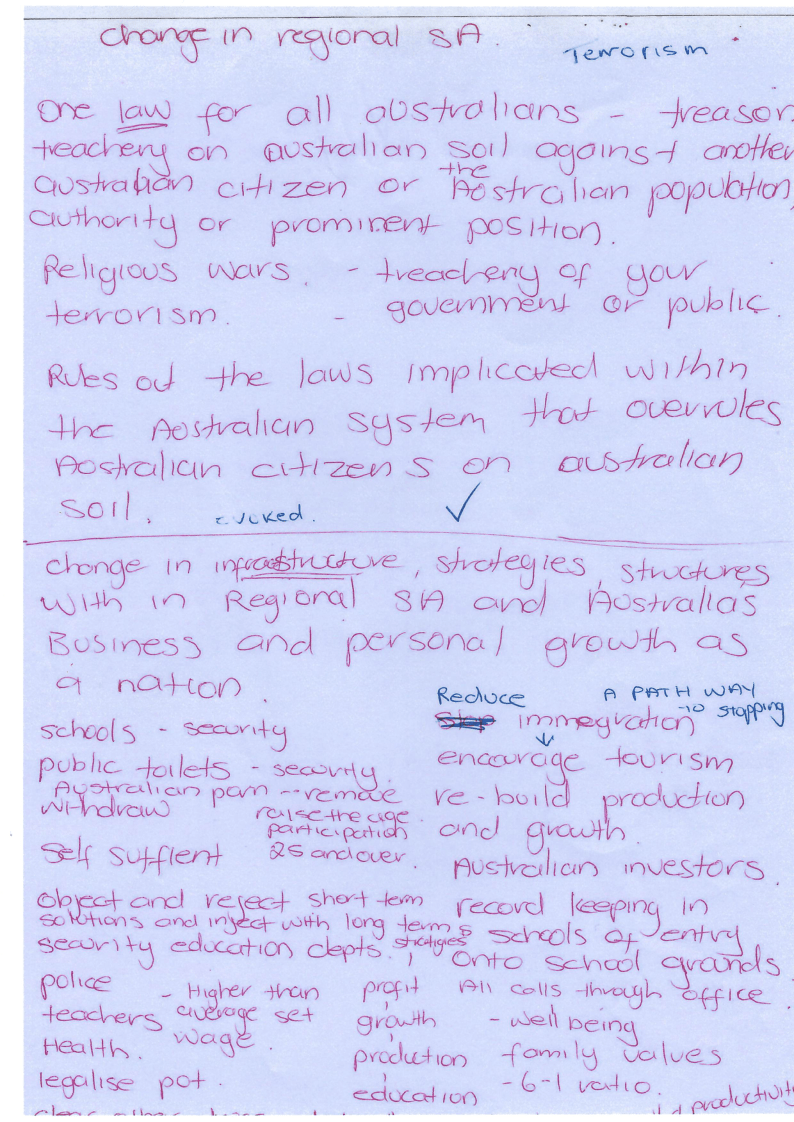 change in regional SA.
Terrorism
One law for all australians - treason
treachery on australian soil against another
australian citizen or the Australian population,
authority or prominent position.
Religious wars. - treachery of your
terrorism. - government or public.
Rules out the laws implicated within
the Australian system that overrules
Australian citizens on australian
soil.
change in infrastructure, strategies, structures
with in Regional SA and Australias
Business and personal growth as
a nation.
Reduce A PATH WAY
to stopping
immegration
schools - security
encourage tourism
public toilets - security.
Australian parn -- remove
withdraw raise the age.
participation
25 and over.
re-build production
and growth.
Self suffient
Australian investors.
object and reject short term
solutions and inject with long term
security education depts. stratigies
record keeping in
schools of entry
onto school grounds
police
teachers
Health.
- Higher than
average set
wage.
profit
growth
production
education
All calls through office
- well being
family values
- 6-1 ratio.
legalise pot.
productivity